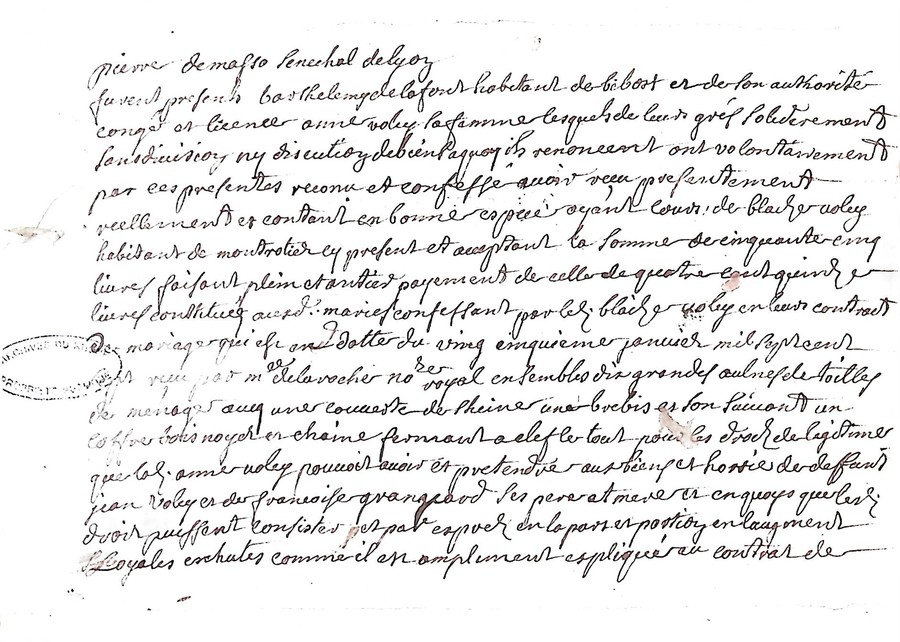 pierre demasso senechal delyon
furent presents barthelemy delafont habitant de bibost et de son authorité
congé et licence anne voley sa femme lesquels de leurs grés solidairement
sans division ny discution de biens a quoy ils renoncent ont volontairement
par ces presentes reconu et confessé avoir reçu presentement
reellement et contant en bonne espece ayant cours de blaise voley
habitant de montrotier cy present et acceptant la somme de cinquante cinq
livres faisant plein et antier payement de celle de quatre cent quinze
livres constituée ausd. maries confessant par led. blaise voley en leurs contract
de mariage qui est en datte du ving cinquieme janvier mil sept cent
reçu par me delaroche nore royal ensembles dix grandes aulnes de toilles
de menage avec une couverte de theine une brebis et son suivant un
coffre bois noyer et chaine fermant a clef le tout pour les droits de legitime
que lad. anne voley pouvoit avoir et pretendre aux biens et hoirie de deffunt
jean voley et de francoise granjard ses pere et mere et en quoys que lesd.
droit puissent consister et par exprès en la part et portion en l'augment
et loyales eschutes comme il est amplement expliqué au contrat de